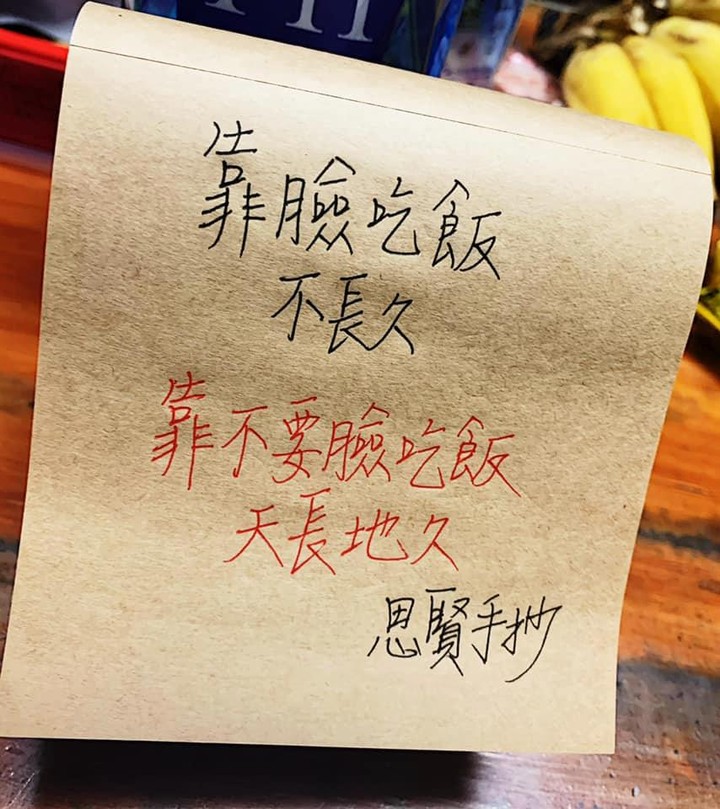 靠臉吃飯
不長久
靠不要臉吃飯
天長地久
思賢手抄